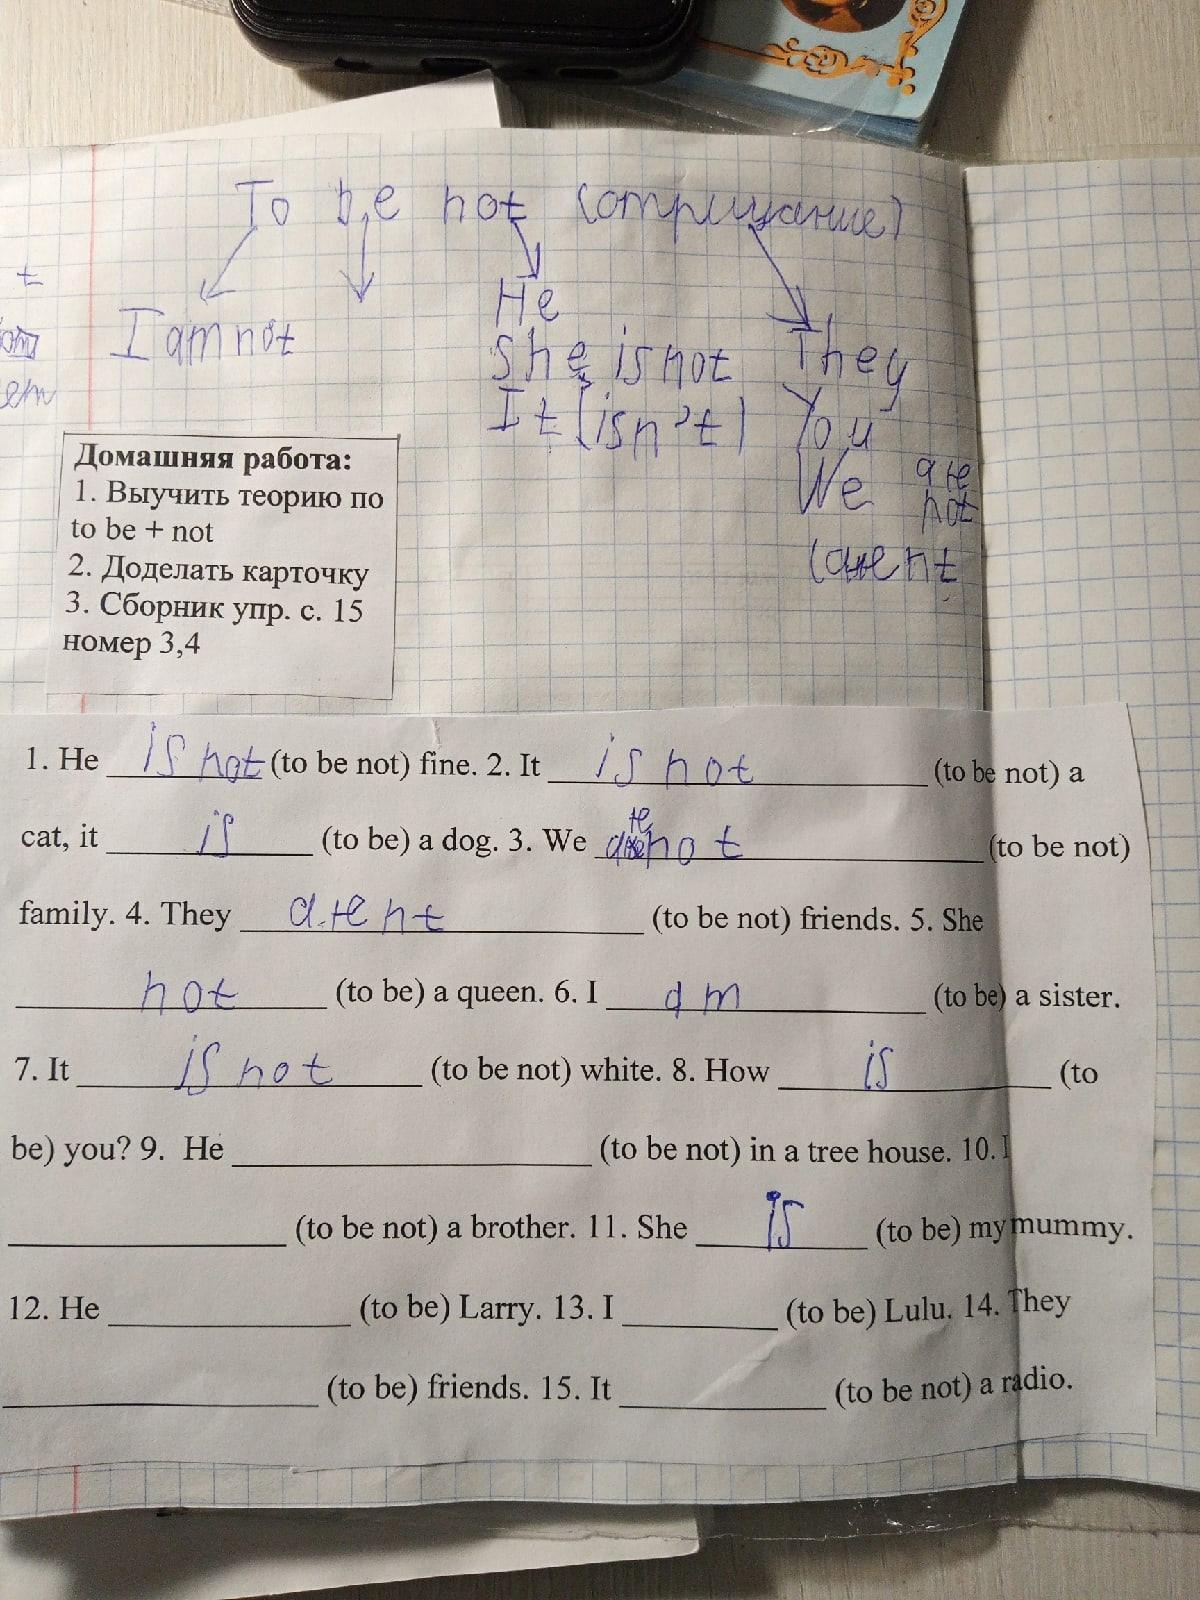 To be not (отрицание)
I am not
He
She is not
It (isn't)
They
You
We are
not
(arent
Домашняя работа:
1. Выучить теорию по
to be + not
2. Доделать карточку
3. Сборник упр. с. 15
номер 3,4
1. He is not (to be not) fine. 2. It is not (to be not) a
cat, it is (to be) a dog. 3. We are not (to be not)
family. 4. They arent (to be not) friends. 5. She
not (to be) a queen. 6. I am (to be) a sister.
7. It is not (to be not) white. 8. How is (to
be) you? 9. He ____ (to be not) in a tree house. 10. I
____ (to be not) a brother. 11. She is (to be) my mummy.
12. He ____ (to be) Larry. 13. I ____ (to be) Lulu. 14. They
____ (to be) friends. 15. It ____ (to be not) a radio.